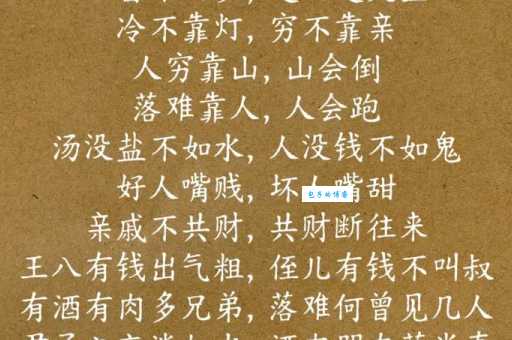 冷不靠灯，穷不靠亲
人穷靠山，山会倒
落难靠人，人会跑
汤没盐不如水，人没钱不如鬼
好人嘴贱，坏人嘴甜
亲戚不共财，共财断往来
王八有钱出气粗，侄儿有钱不叫叔
有酒有肉多兄弟，落难何曾见几人